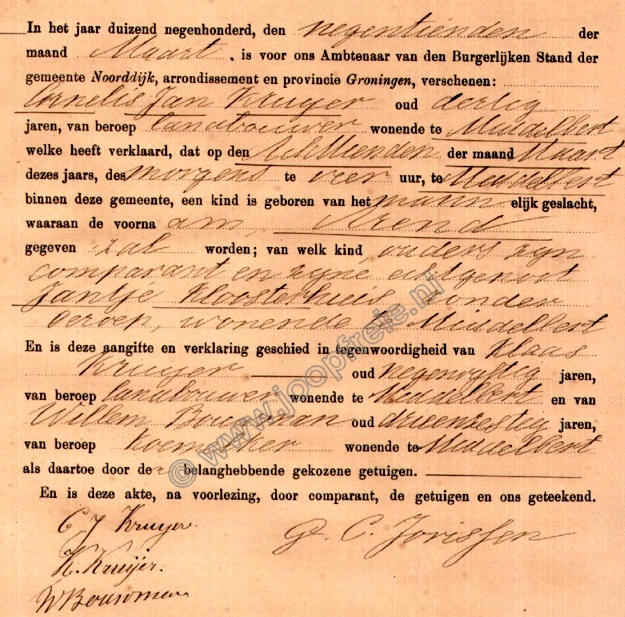 In het jaar duizend negenhonderd, den negentienden der
maand Maart, is voor ons Ambtenaar van den Burgerlijken Stand der
gemeente Noorddijk, arrondissement en provincie Groningen, verschenen:
Cornelis Jan Kruyer oud dertig
jaren, van beroep landbouwer wonende te Middelbert
welke heeft verklaard, dat op den achttienden der maand Maart
dezes jaars, des morgens te vier uur, te Middelbert
binnen deze gemeente, een kind is geboren van het mannelijk geslacht,
waaraan de voornaam Arend
gegeven zal worden; van welk kind ouders zijn
comparant en zijne echtgenoot
Jantje Kloosterhuis zonder
beroep, wonende te Middelbert
En is deze aangifte en verklaring geschied in tegenwoordigheid van Klaas
Kruyer oud negenvijftig jaren,
van beroep landbouwer wonende te Middelbert en van
Willem Bouwman oud drieenzestig jaren,
van beroep wonende te Middelbert
als daartoe door de belanghebbende gekozene getuigen.
En is deze akte, na voorlezing, door comparant, de getuigen en ons geteekend.
C J Kruyer
G. C. Jorissen
K. Kruijer.
W Bouwman
© www.joopfreie.nl